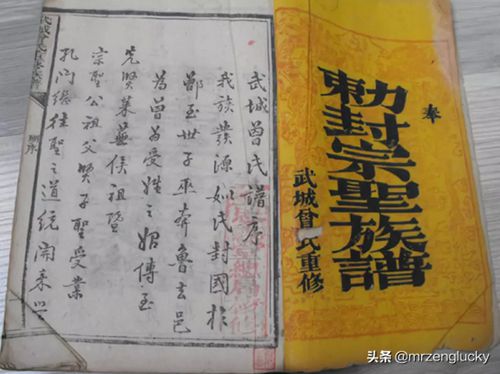 奉
勅封宗聖族譜
武城曾氏重修
武城曾氏譜序
我族發源姒氏封國於
鄫至世子巫奔魯去邑
為曾為受姓之始傳至
先賢萊蕪侯祖暨
宗聖公祖父賢子聖受業
孔門繼往聖之道統開來
头条 @mrzenglucky